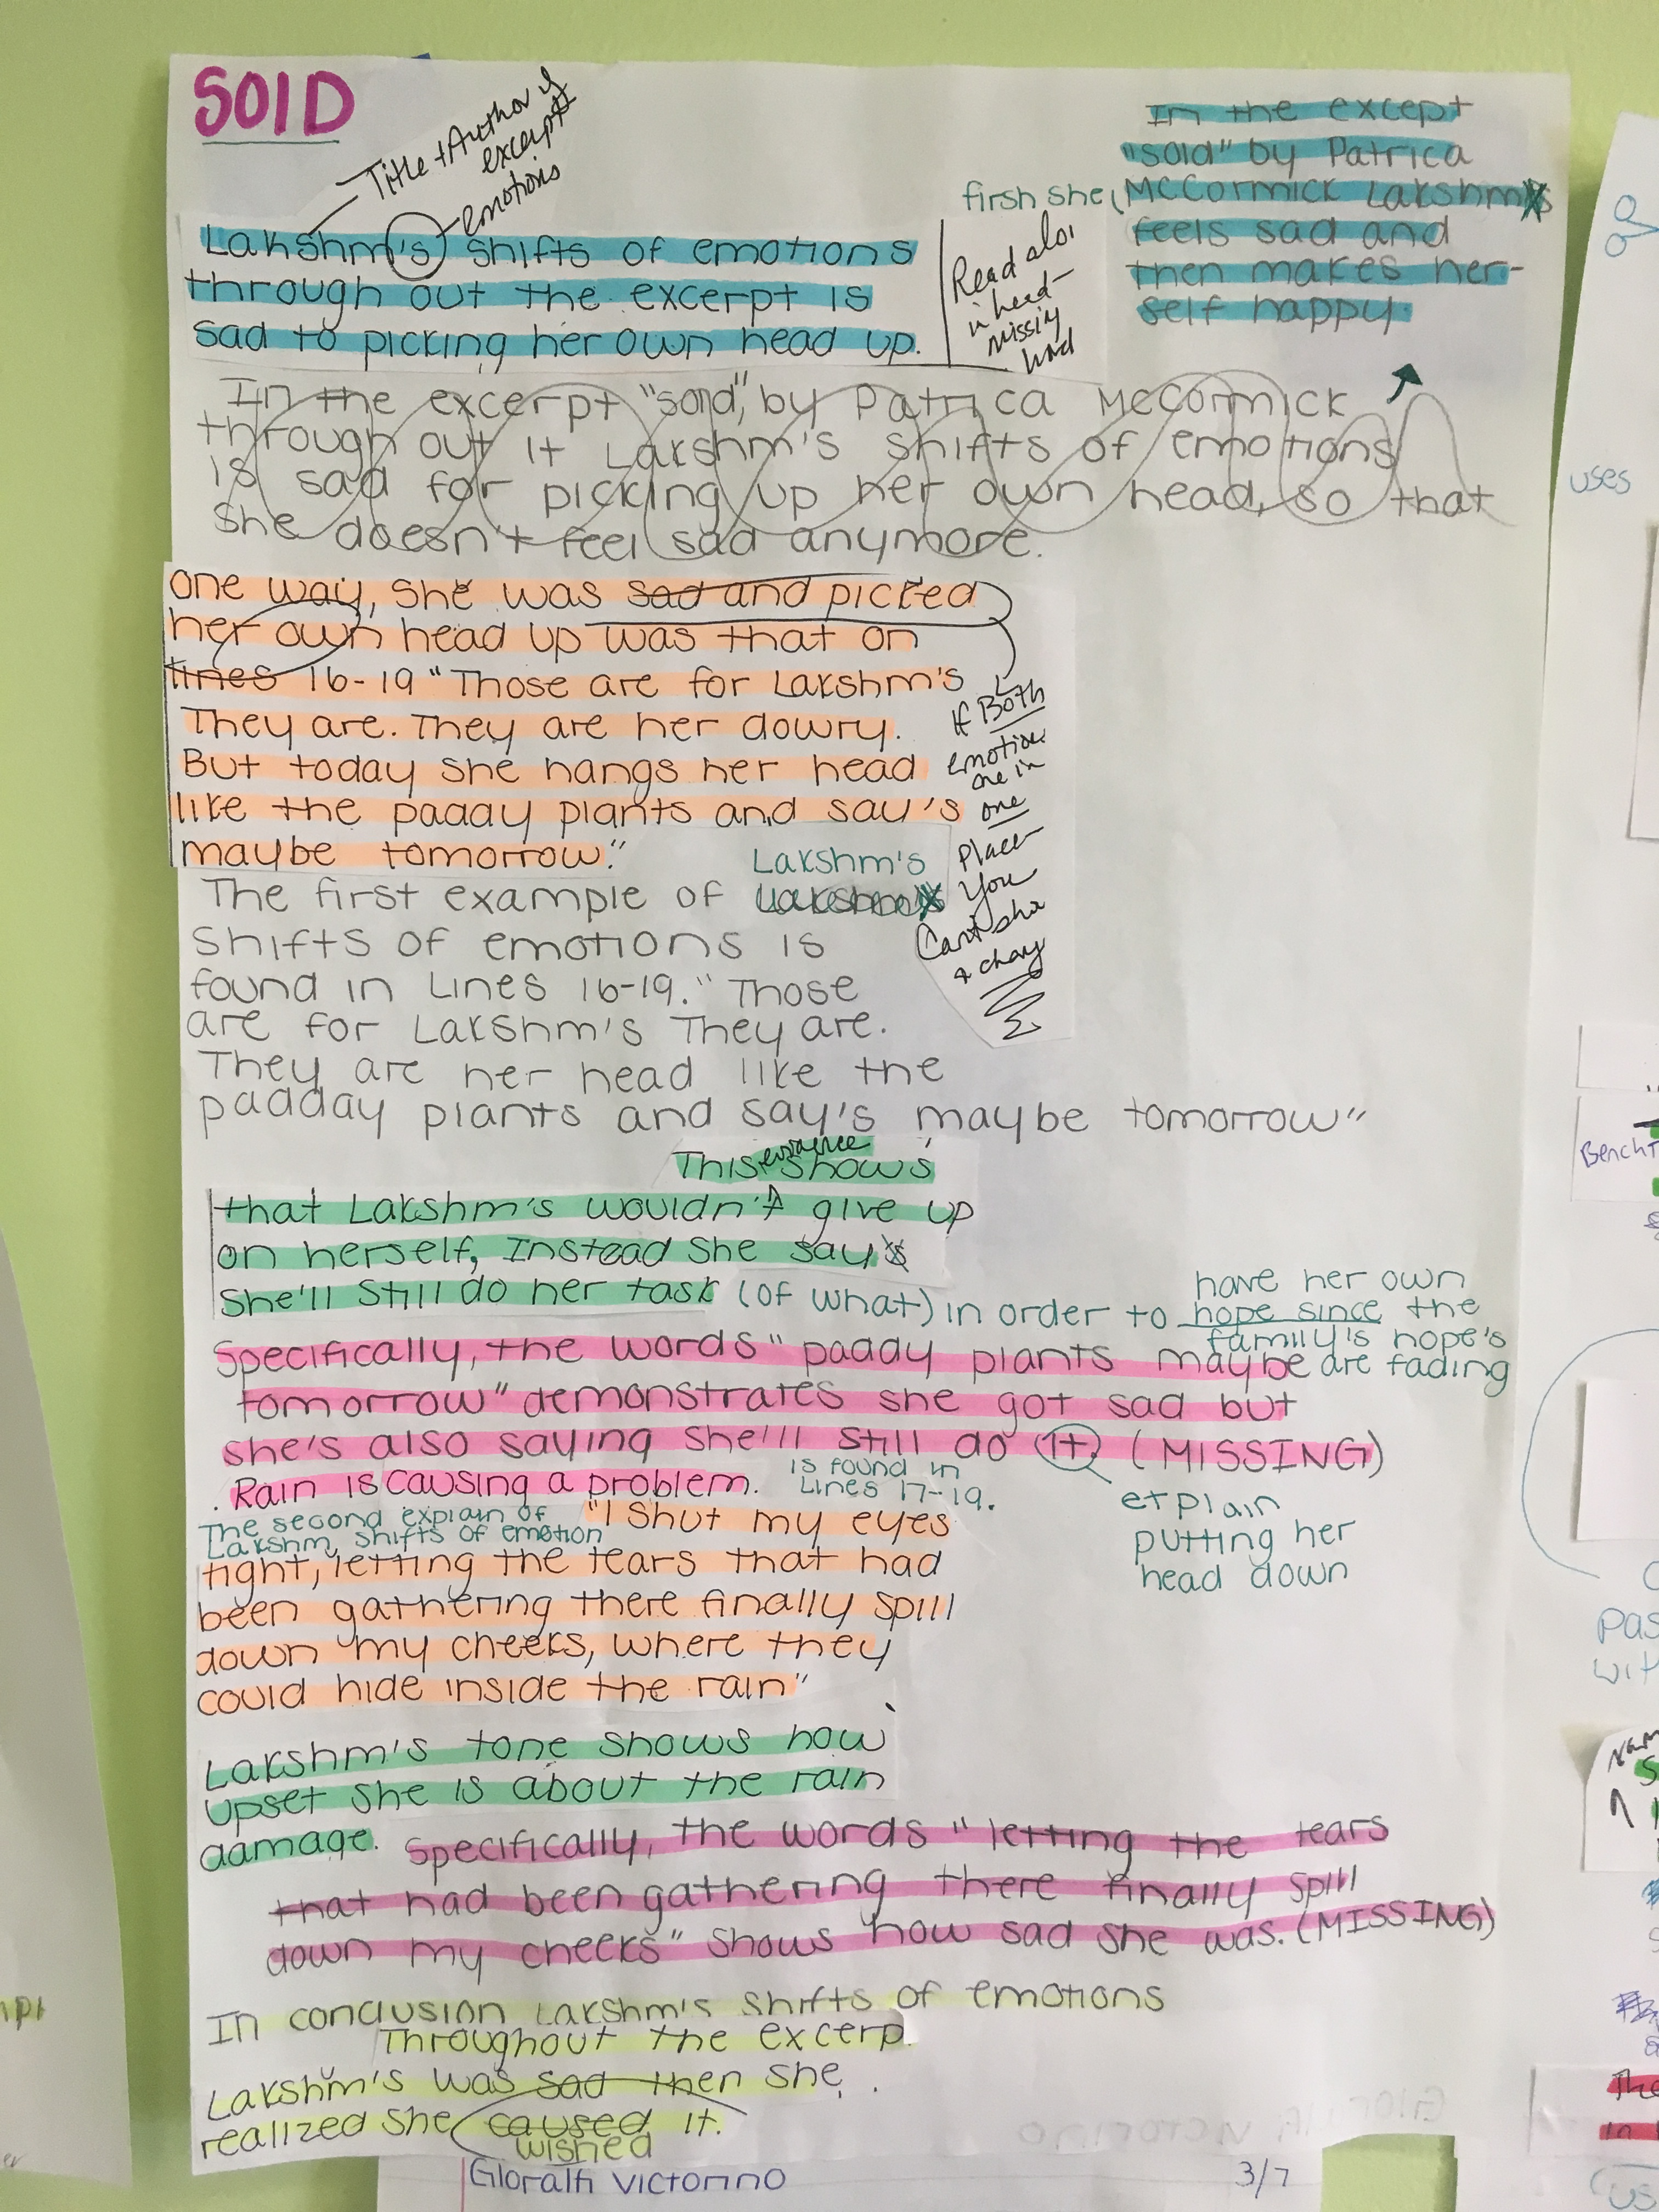 SOlD
Title + Author of
excerpt
emotions
In the except
"sold" by Patrica
firsh she (McCormick Lakshm
feels sad and
then makes her-
self happy.
Lakshm's shifts of emotions
through out the excerpt is
sad to picking her own head up.
Read
in head-
missing
In the excerpt "sold", by Patrica McCormick
through out it Lakshm's shifts of emotions
is sad for picking up her own head, so that
she doesn't feel sad anymore.
one way, she was sad and picked
her own head up was that on
lines 16-19 "Those are for Lakshm's
They are. They are her dowry.
But today she hangs her head
like the paddy plants and say's
maybe tomorrow."
If Both
emotions
are in
one
place
You
Can't sho
a chang
Lakshm's
The first example of
shifts of emotions is
found in Lines 16-19. "Those
are for Lakshm's They are.
They are her head like the
padday plants and say's maybe tomorrow"
This evidence shows
that Lakshm's wouldn't give up
on herself, Instead she say
she'll still do her task (of what) in order to have her own
hope since the
family's hope's
are fading
Specifically, the words "paddy plants maybe
tomorrow" demonstrates she got sad but
she's also saying she'll still do it. (MISSING)
explain
putting her
head down
Rain is causing a problem.
The second explain of
Lakshm, shifts of emotion
is found in
Lines 17-19.
"I Shut my eyes
tight, letting the tears that had
been gathering there finally spill
down my cheeks, where they
could hide inside the rain"
Lakshm's tone shows how
upset she is about the rain
damage. Specifically, the words "letting the tears
that had been gathering there finally spill
down my cheeks" shows how sad she was. (MISSING)
In conclusion Lakshm's shifts of emotions
Throughout the excerp.
Lakshm's was sad then she
realized she caused it.
wished
Gloralfi Victorino
3/7
uses
Bench
pas
wit
The
in
us